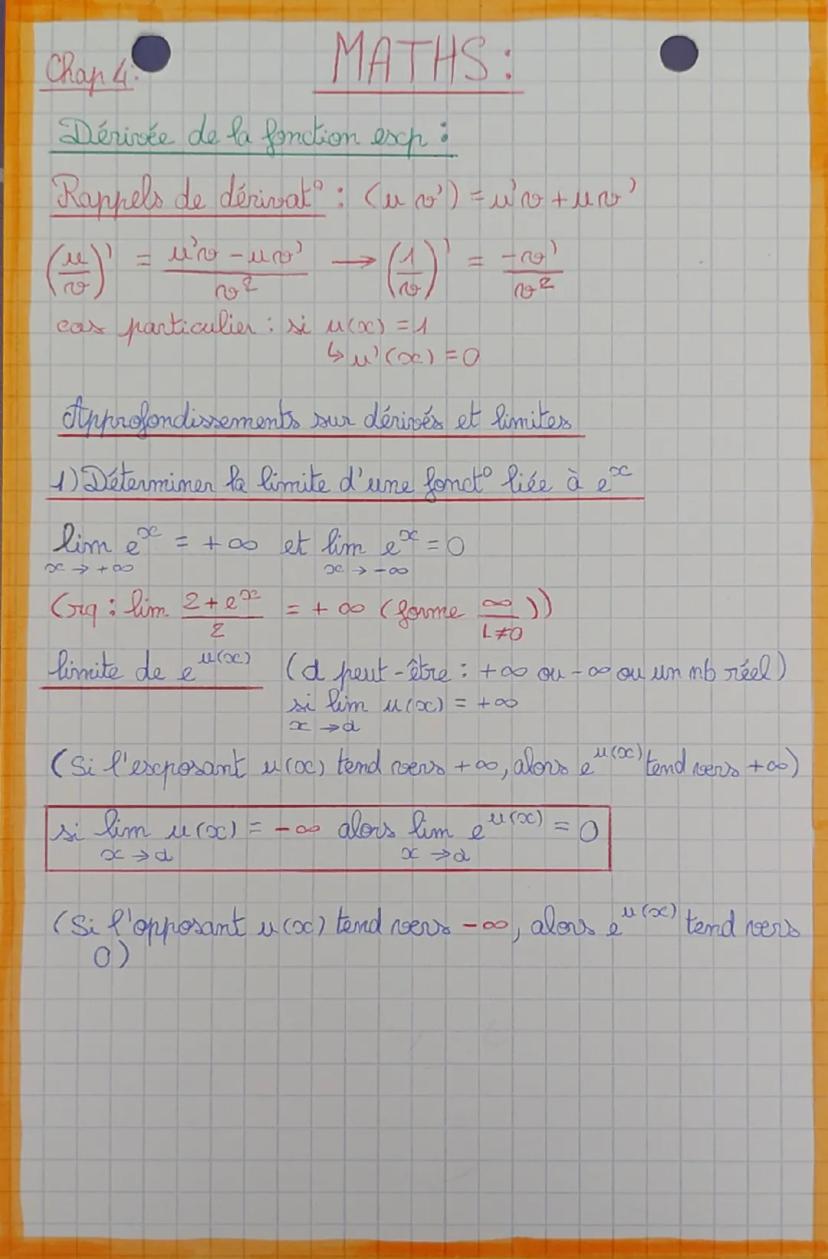 Chap 4:
MATHS:
Dérivée de la fonction exp:
Rappels de dérivat°: (u v') = u'v + uv'
(u/v)' = (u'v - uv')/v² → (1/v)' = -v'/v²
cas particulier: si u(x) = 1
↳ u'(x) = 0
Approfondissements sur dérivés et limites
1) Déterminer la limite d'une fonct° liée à e^x
lim e^x = +∞ et lim e^x = 0
x → +∞ x → -∞
(rq: lim (2+e^x)/2 = +∞ (forme ∞/L≠0))
limite de e^u(x) (d peut-être: +∞ ou -∞ ou un nb réel)
si lim u(x) = +∞
x → d
(Si l'exposant u(x) tend vers +∞, alors e^u(x) tend vers +∞)
si lim u(x) = -∞ alors lim e^u(x) = 0
x → d x → d
(Si l'opposant u(x) tend vers -∞, alors e^u(x) tend vers
0)